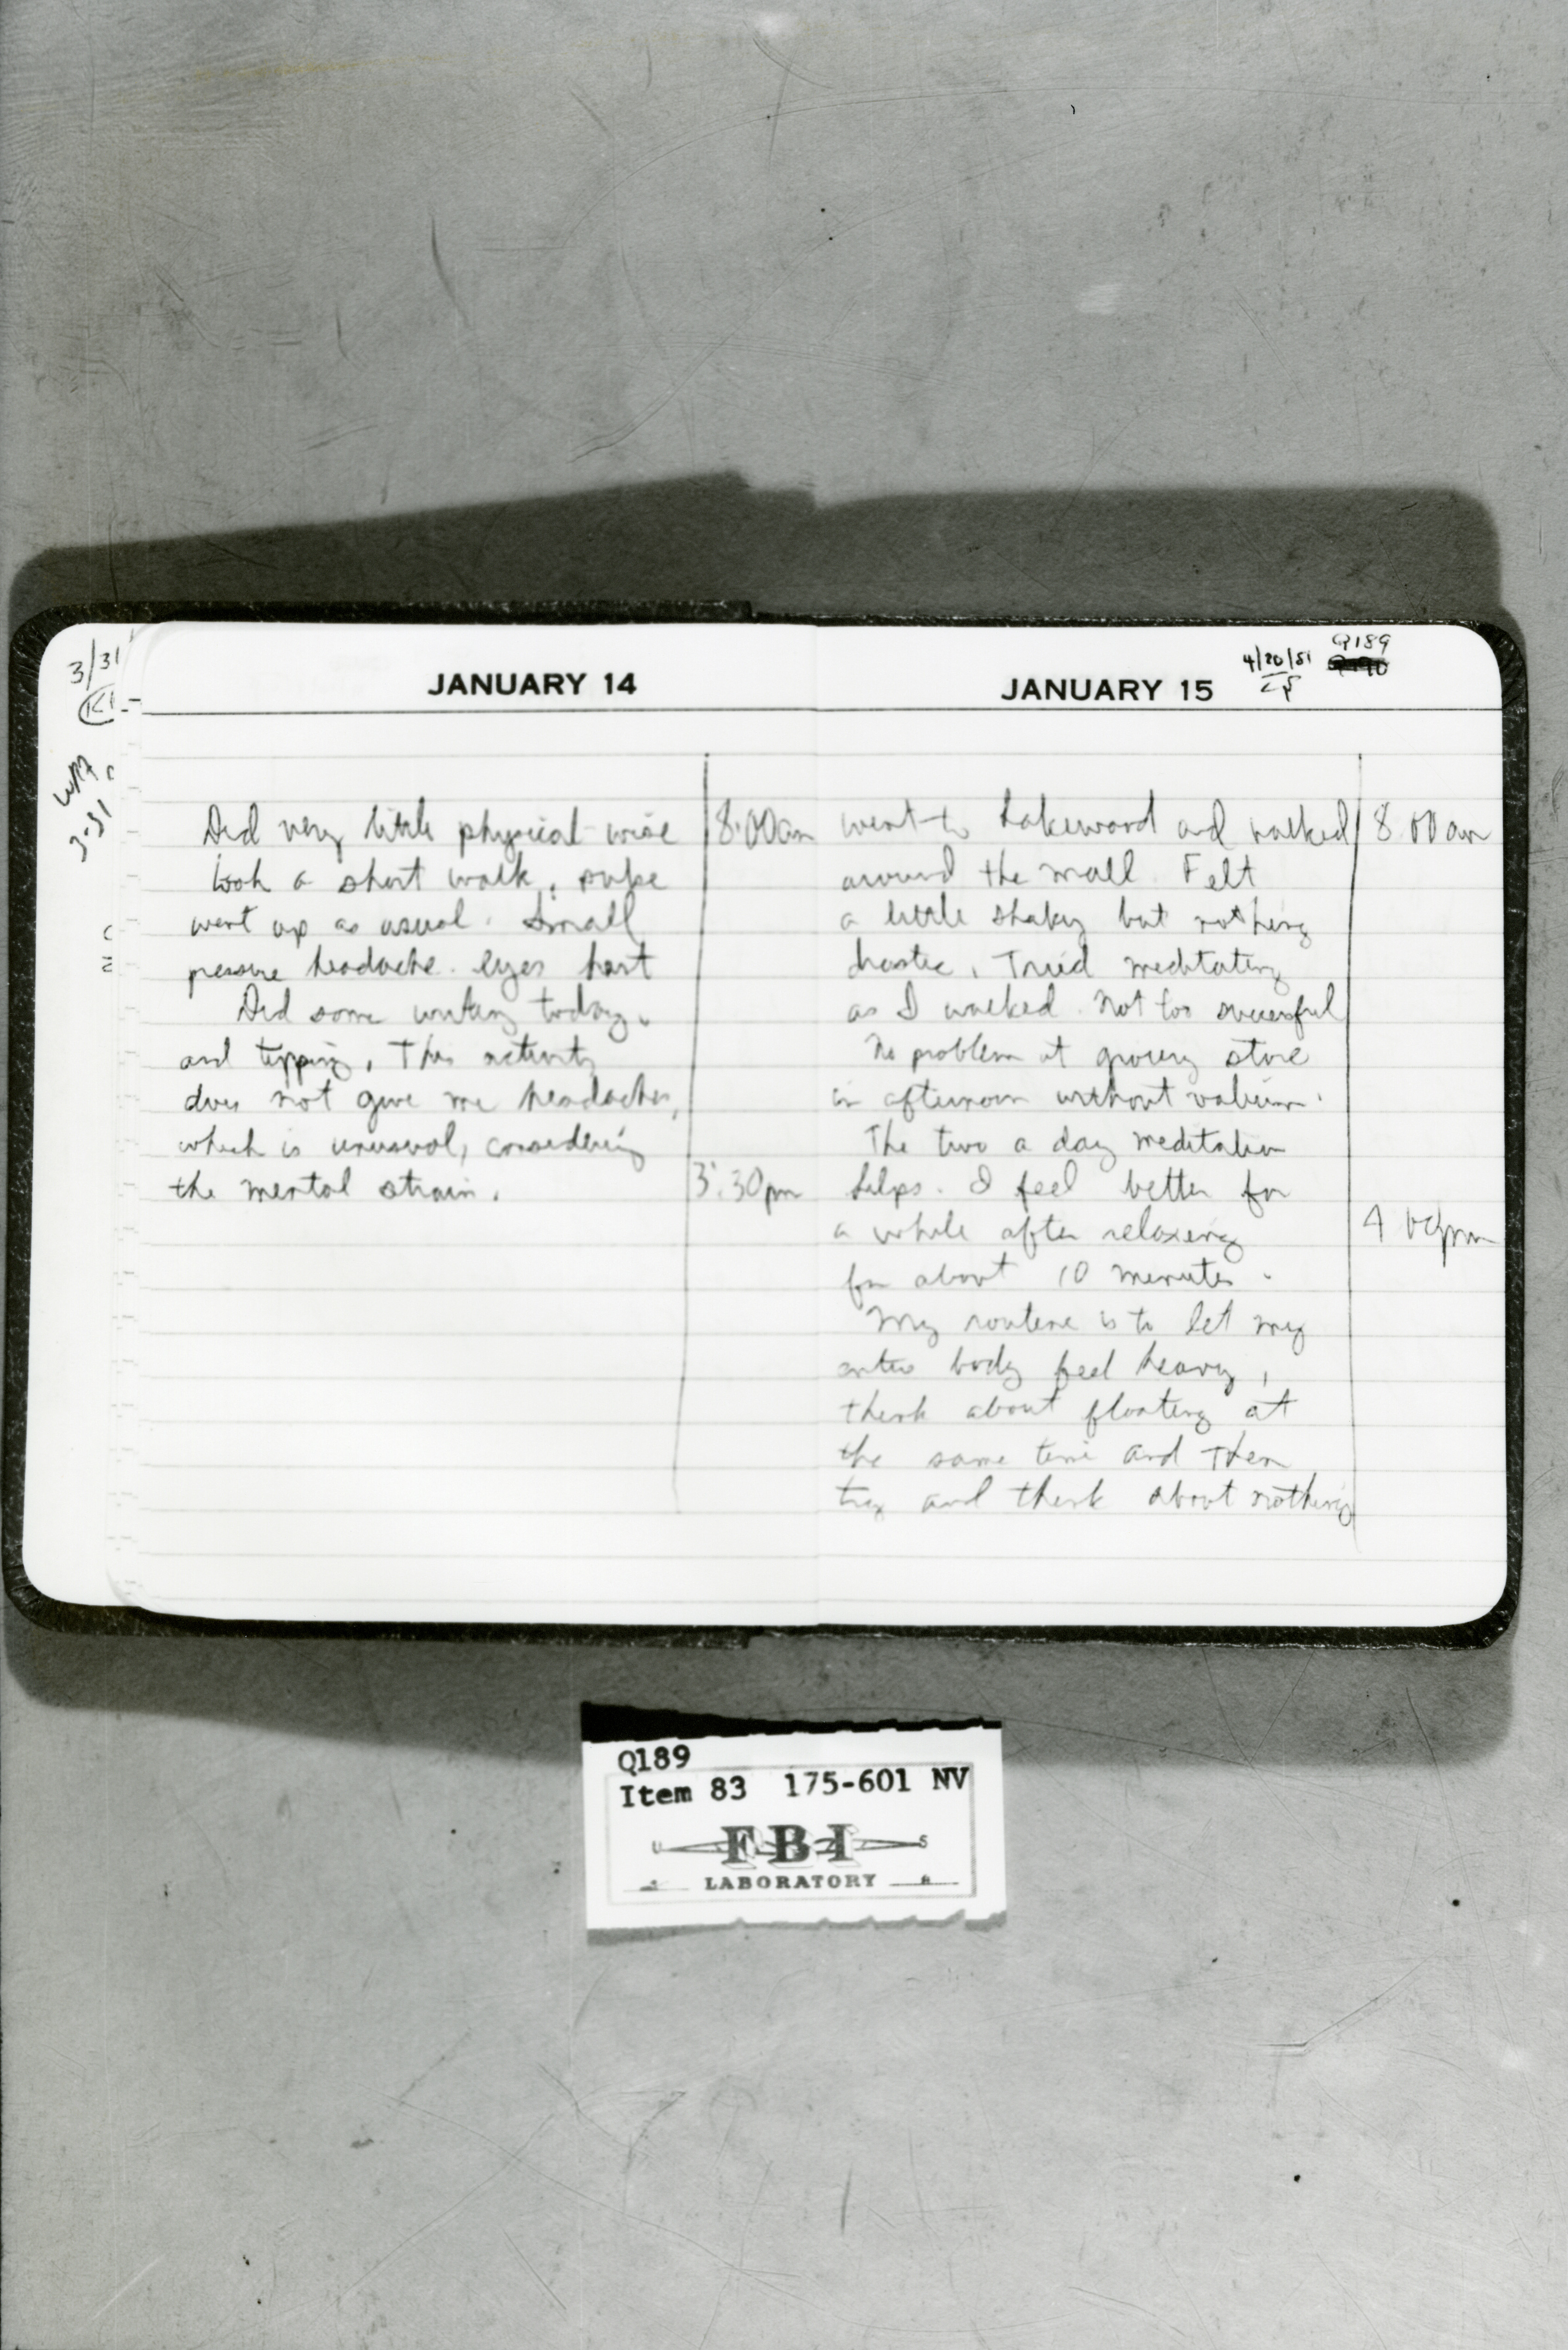 3/31
WM
3-31
JANUARY 14
Did very little physical-wise
took a short walk, pulse
went up as usual. Small
pressure headache. Eyes hurt
Did some writing today,
and typing. This activity
does not give me headaches,
which is unusual, considering
the mental strain.
8:00am
3:30pm
JANUARY 15
4/20/81
Q189
went to Lakewood and walked
around the mall. Felt
a little shaky but nothing
drastic. Tried meditating
as I walked. Not too successful
No problem at grocery store
in afternoon without valium.
The two a day meditation
helps. I feel better for
a while after relaxing
for about 10 minutes.
My routine is to let my
entire body feel heavy,
think about floating at
the same time and then
try and think about nothing
8:00am
4:00pm
Q189
Item 83 175-601 NV
U S
FBI
LABORATORY